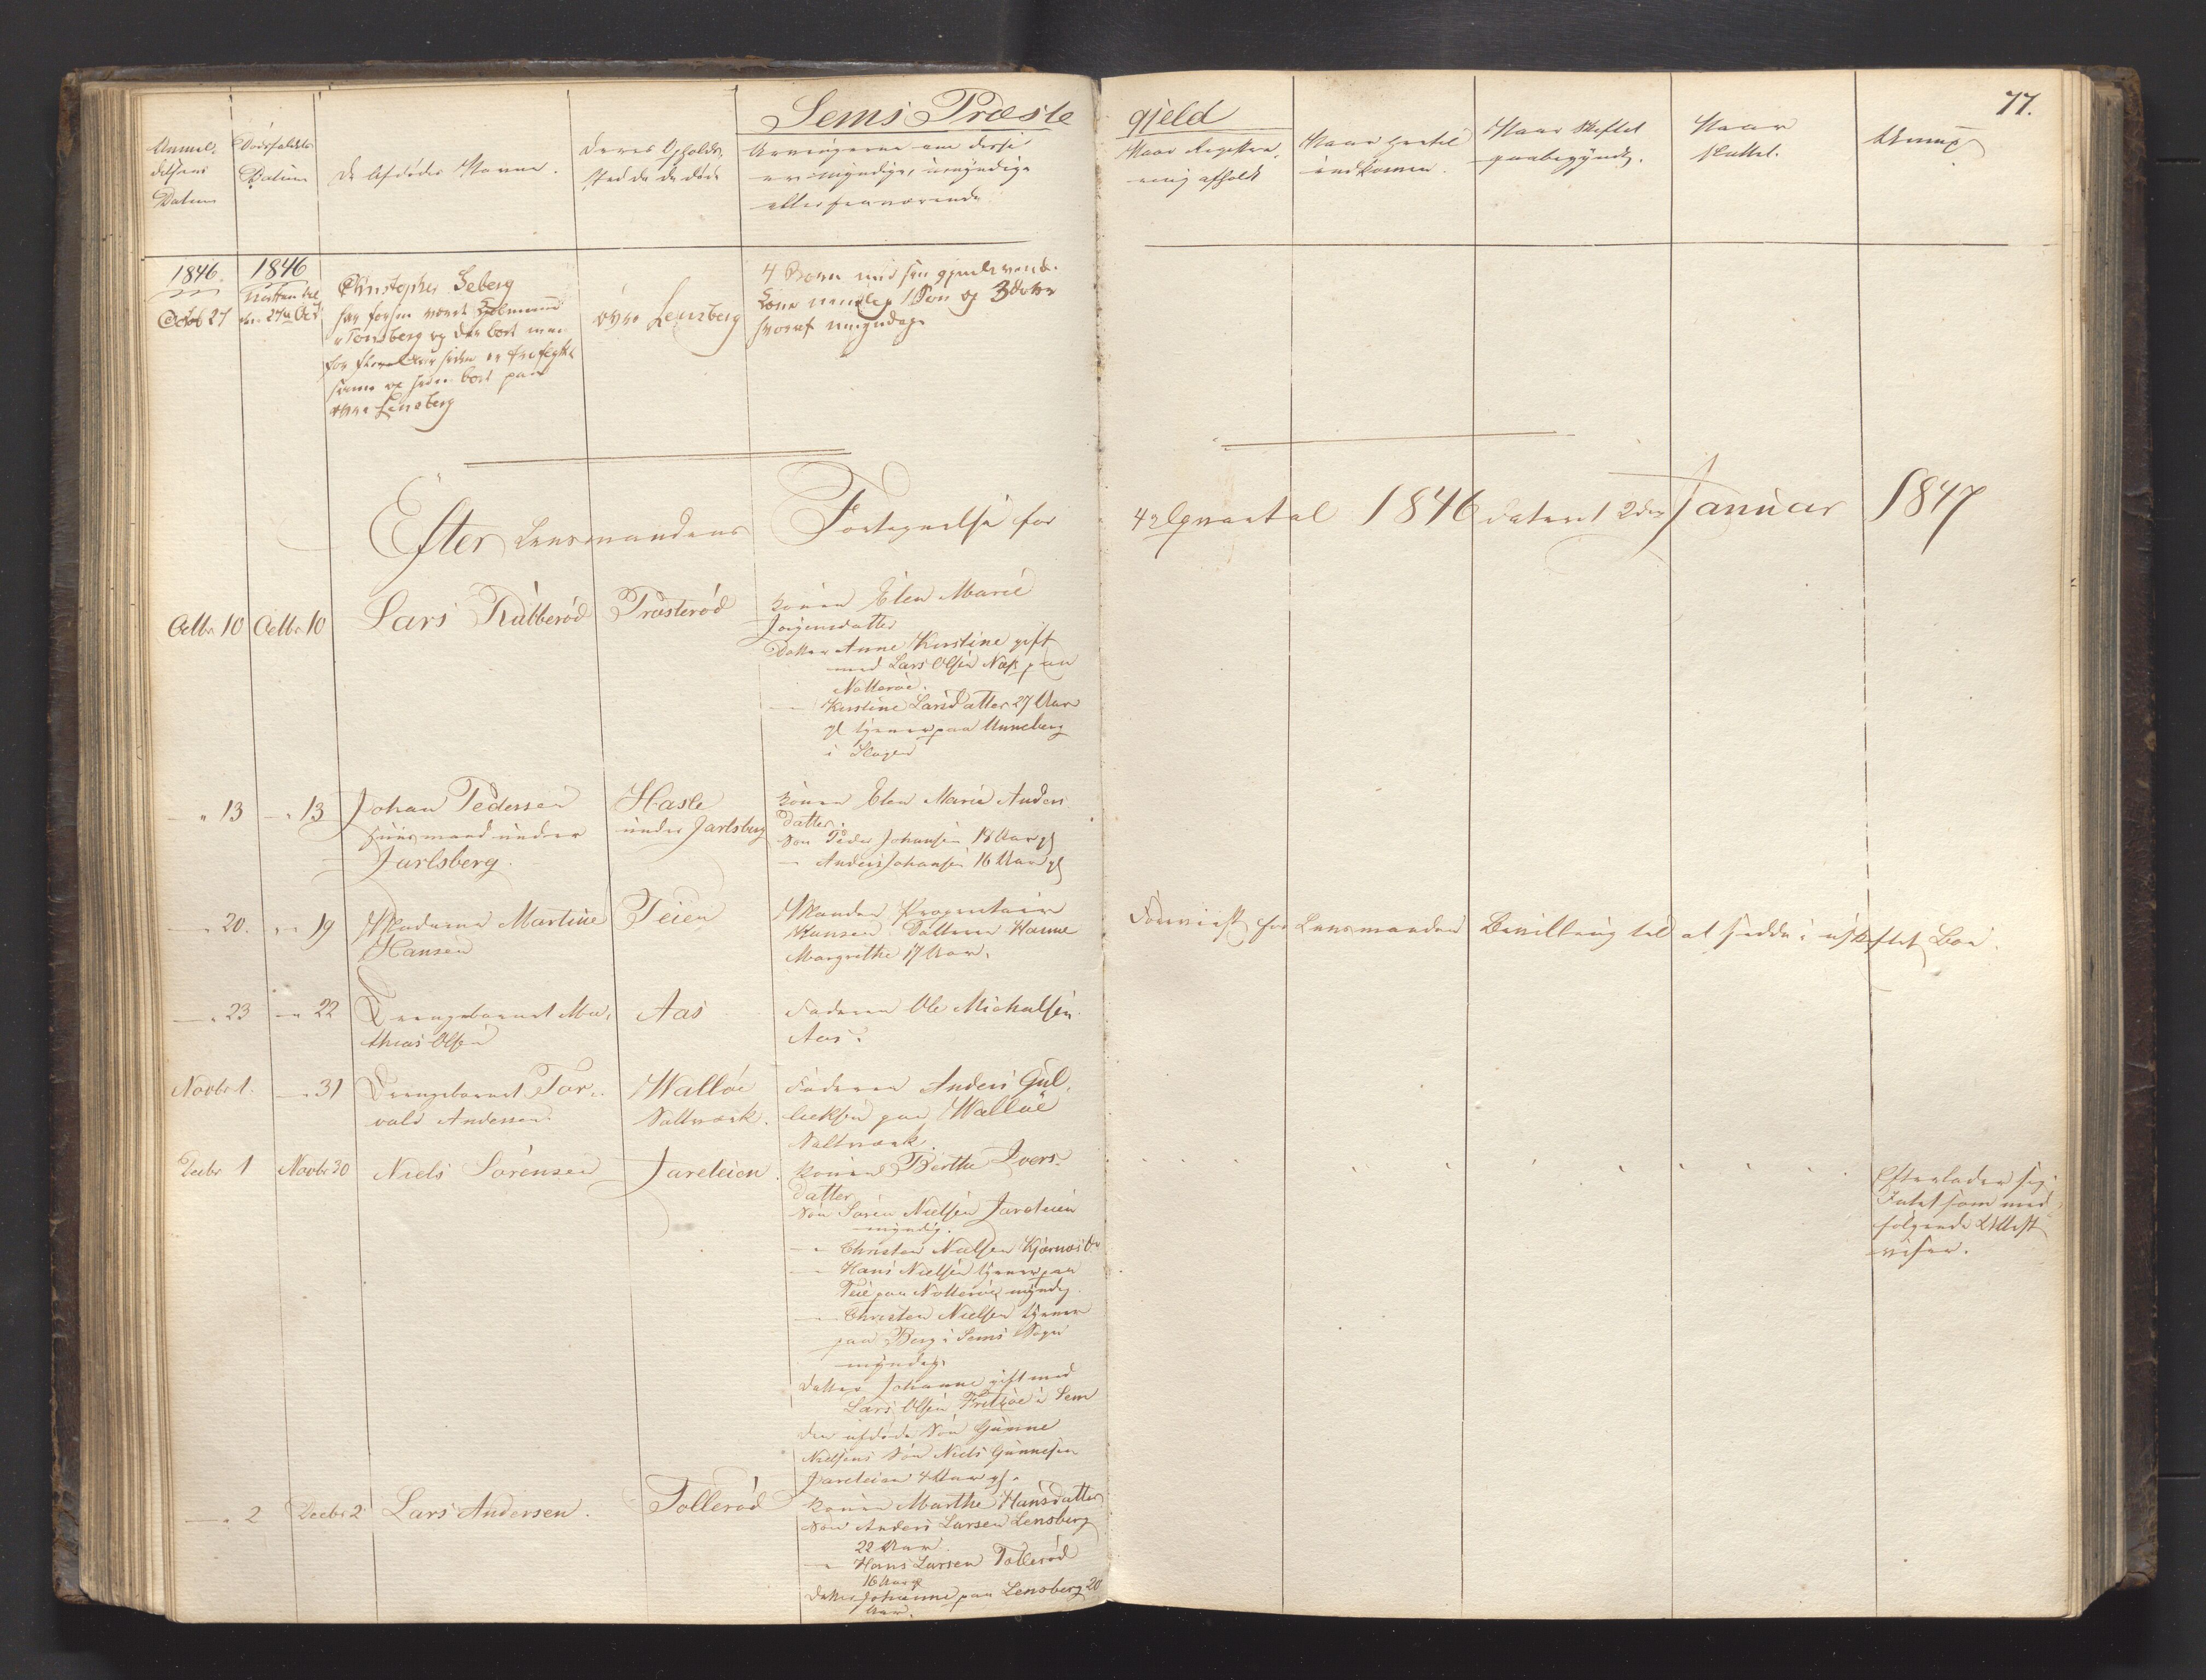 Sems Præste
gjeld
77.
Anmel-
delsens
Datum
Dødsfaldets
Datum
De Afdødes Navne.
Deres Opholds-
sted da de døde
Arvingerne om disse
ere myndige, umyndige
eller fraværende
Naar Registre-
ring afholdt
Naar hertil
indkommen.
Naar Skiftet
paabegyndt.
Naar
sluttet.
1846.
Octob 27
1846
den 27de Oct
Christopher Seberg
har forhen været
i Tonsberg og der boet men
for Aar siden
og siden boet paa
øvre Lensberg
øvre Lensberg
4 Børn med sin gjenlevende
Kone nemlig 1 Søn og 3 døtre
hvoraf umyndige
Efter Lensmandens Fortegnelse for
4de Qvartal 1846 dateret 2den Januar 1847
Octbr 10
Octbr 10
Lars Rubberød
Træsterød
Konen Elen Marie
Jørgensdatter
Datter Anne Kirstine gift
med Lars Olsen Næs paa
Nøtterøe.
— Kirstine Larsdatter 27 Aar
gl tjener paa Unneberg
i Slagen
— " 13
— " 13
Johan Pedersen
Huusmand under
Jarlsberg.
Hasle
under Jarlsberg
Konen Elen Marie Anders
datter.
Søn Peder Johansen 18 Aar gl
— Anders Johansen 16 Aar gl
— " 20.
— " 19
Madame Martine
Hansen
Teien
Manden Procurator
Hansen. Datteren Hanne
Margrethe 17 Aar.
Foreviist for Lensmanden Bevilling til at sidde i uskiftet Boe.
— " 23
— " 22
Drengebarnet Ma-
thias Olsen
Aas
Faderen Ole Michalsen
Aas.
Novbr 1.
— " 31
Drengebarnet Tor-
vald Andersen
Walløe
Saltværk.
Faderen Anders Gul-
leksen paa Walløe
Saltværk.
Decbr 1
Novbr 30
Niels Sørensen
Jareteien.
Konen Berthe Ivers-
datter
Søn Søren Nielsen Jareteien
myndig.
— Christen Nielsen Kjærnæs
— Hans Nielsen tjener paa
Teie paa Nøtterøe, myndig.
— Christen Nielsen tjener
paa Berg i Sems Sogn
myndig.
Datter Johanne gift med
Lars Olsen i Sem
den afdøde Søn Gunne
Nielsens Søn Niels Gunnesen
Jareteien 4 Aar gl.
Efterlader sig
Intet som med-
følgende Attest
viser.
— " 2
Decbr 2
Lars Andersen.
Tollerød
Konen Marthe Hansdatter
Søn Anders Larsen Lensberg
22 Aar.
— Hans Larsen Tollerød
16 Aar gl
Datter Johanne paa Lensberg 20
Aar.